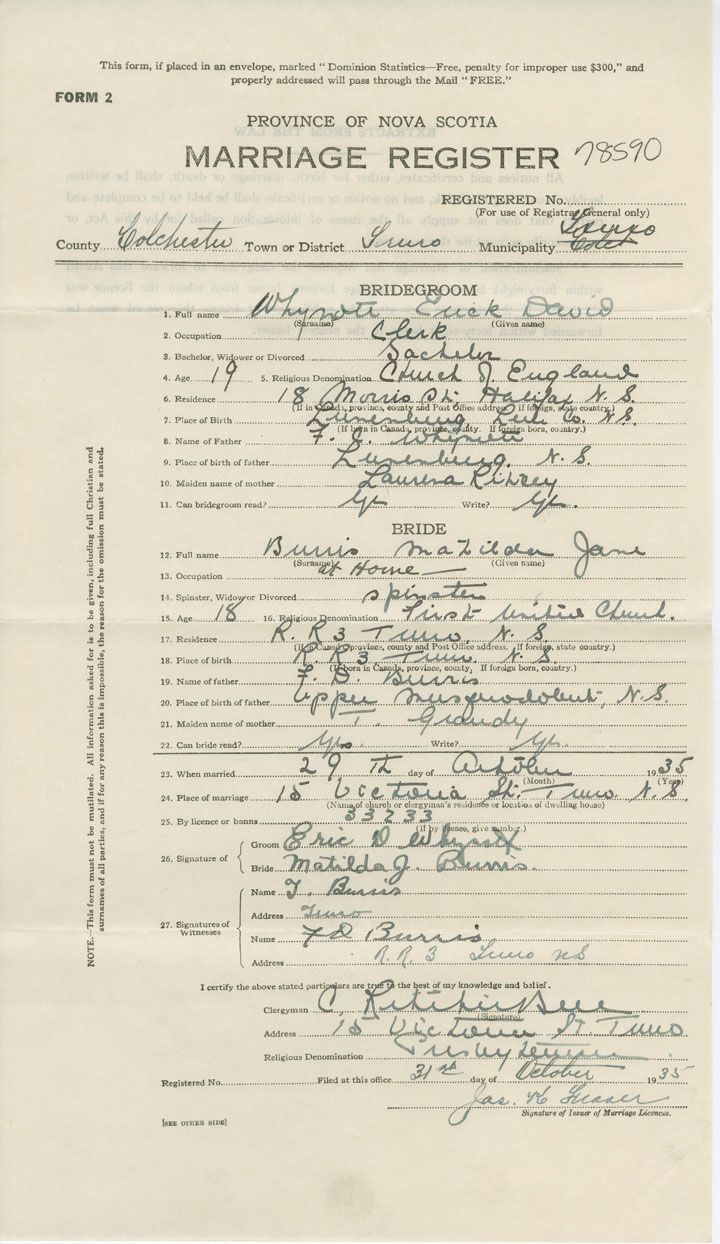 This form, if placed in an envelope, marked "Dominion Statistics—Free, penalty for improper use $300," and
properly addressed will pass through the Mail "FREE."
FORM 2
PROVINCE OF NOVA SCOTIA
MARRIAGE REGISTER 78590
REGISTERED No.
(For use of Registrar General only)
Truro
County Colchester Town or District Truro Municipality Colch
BRIDEGROOM
1. Full name Whynott Erick David
(Surname) (Given name)
2. Occupation Clerk
3. Bachelor, Widower or Divorced Bachelor
4. Age 19 5. Religious Denomination Church of England
6. Residence 18 Morris St. Halifax N. S.
(If in Canada, province, county and Post Office address. If foreign, state country.)
7. Place of Birth Lunenburg Co. N.S.
(If born in Canada, province, county. If foreign born, country.)
8. Name of Father F. Whynott
9. Place of birth of father Lunenburg, N. S.
10. Maiden name of mother Laurena Ritcey
11. Can bridegroom read? Yes Write? Yes.
BRIDE
12. Full name Burris Matilda Jane
(Surname) (Given name)
13. Occupation at Home
14. Spinster, Widow or Divorced spinster
15. Age 18 16. Religious Denomination First United Church.
17. Residence R. R 3 Truro, N. S.
(If in Canada, province, county and Post Office address. If foreign, state country.)
18. Place of birth R. R 3 Truro. N. S.
(If born in Canada, province, county, If foreign born, country.)
19. Name of father F. D. Burris
20. Place of birth of father Upper Musquodoboit, N.S.
21. Maiden name of mother T. Grandy
22. Can bride read? Yes. Write? Yes.
23. When married 29 Th day of October 1935
(Month) (Year)
24. Place of marriage 15 Victoria St. Truro N.S.
(Name of church or clergyman's residence or location of dwelling house)
25. By licence or banns 33233
(If by licence, give number.)
26. Signature of
Groom Eric D Whynott
Bride Matilda J. Burris.
27. Signatures of Witnesses
Name T. Burris
Address Truro
Name F D Burris
Address R. R. 3 Truro NS
I certify the above stated particulars are true to the best of my knowledge and belief.
Clergyman C. Ritchie Bell
(Signature)
Address 15 Victoria St. Truro
Religious Denomination Presbyterian
Registered No. Filed at this office 31st day of October 1935
Jas. K Fraser
Signature of Issuer of Marriage Licences.
[SEE OTHER SIDE]
NOTE.—This form must not be mutilated. All information asked for is to be given, including full Christian and
surnames of all parties, and if for any reason this is impossible, the reason for the omission must be stated.